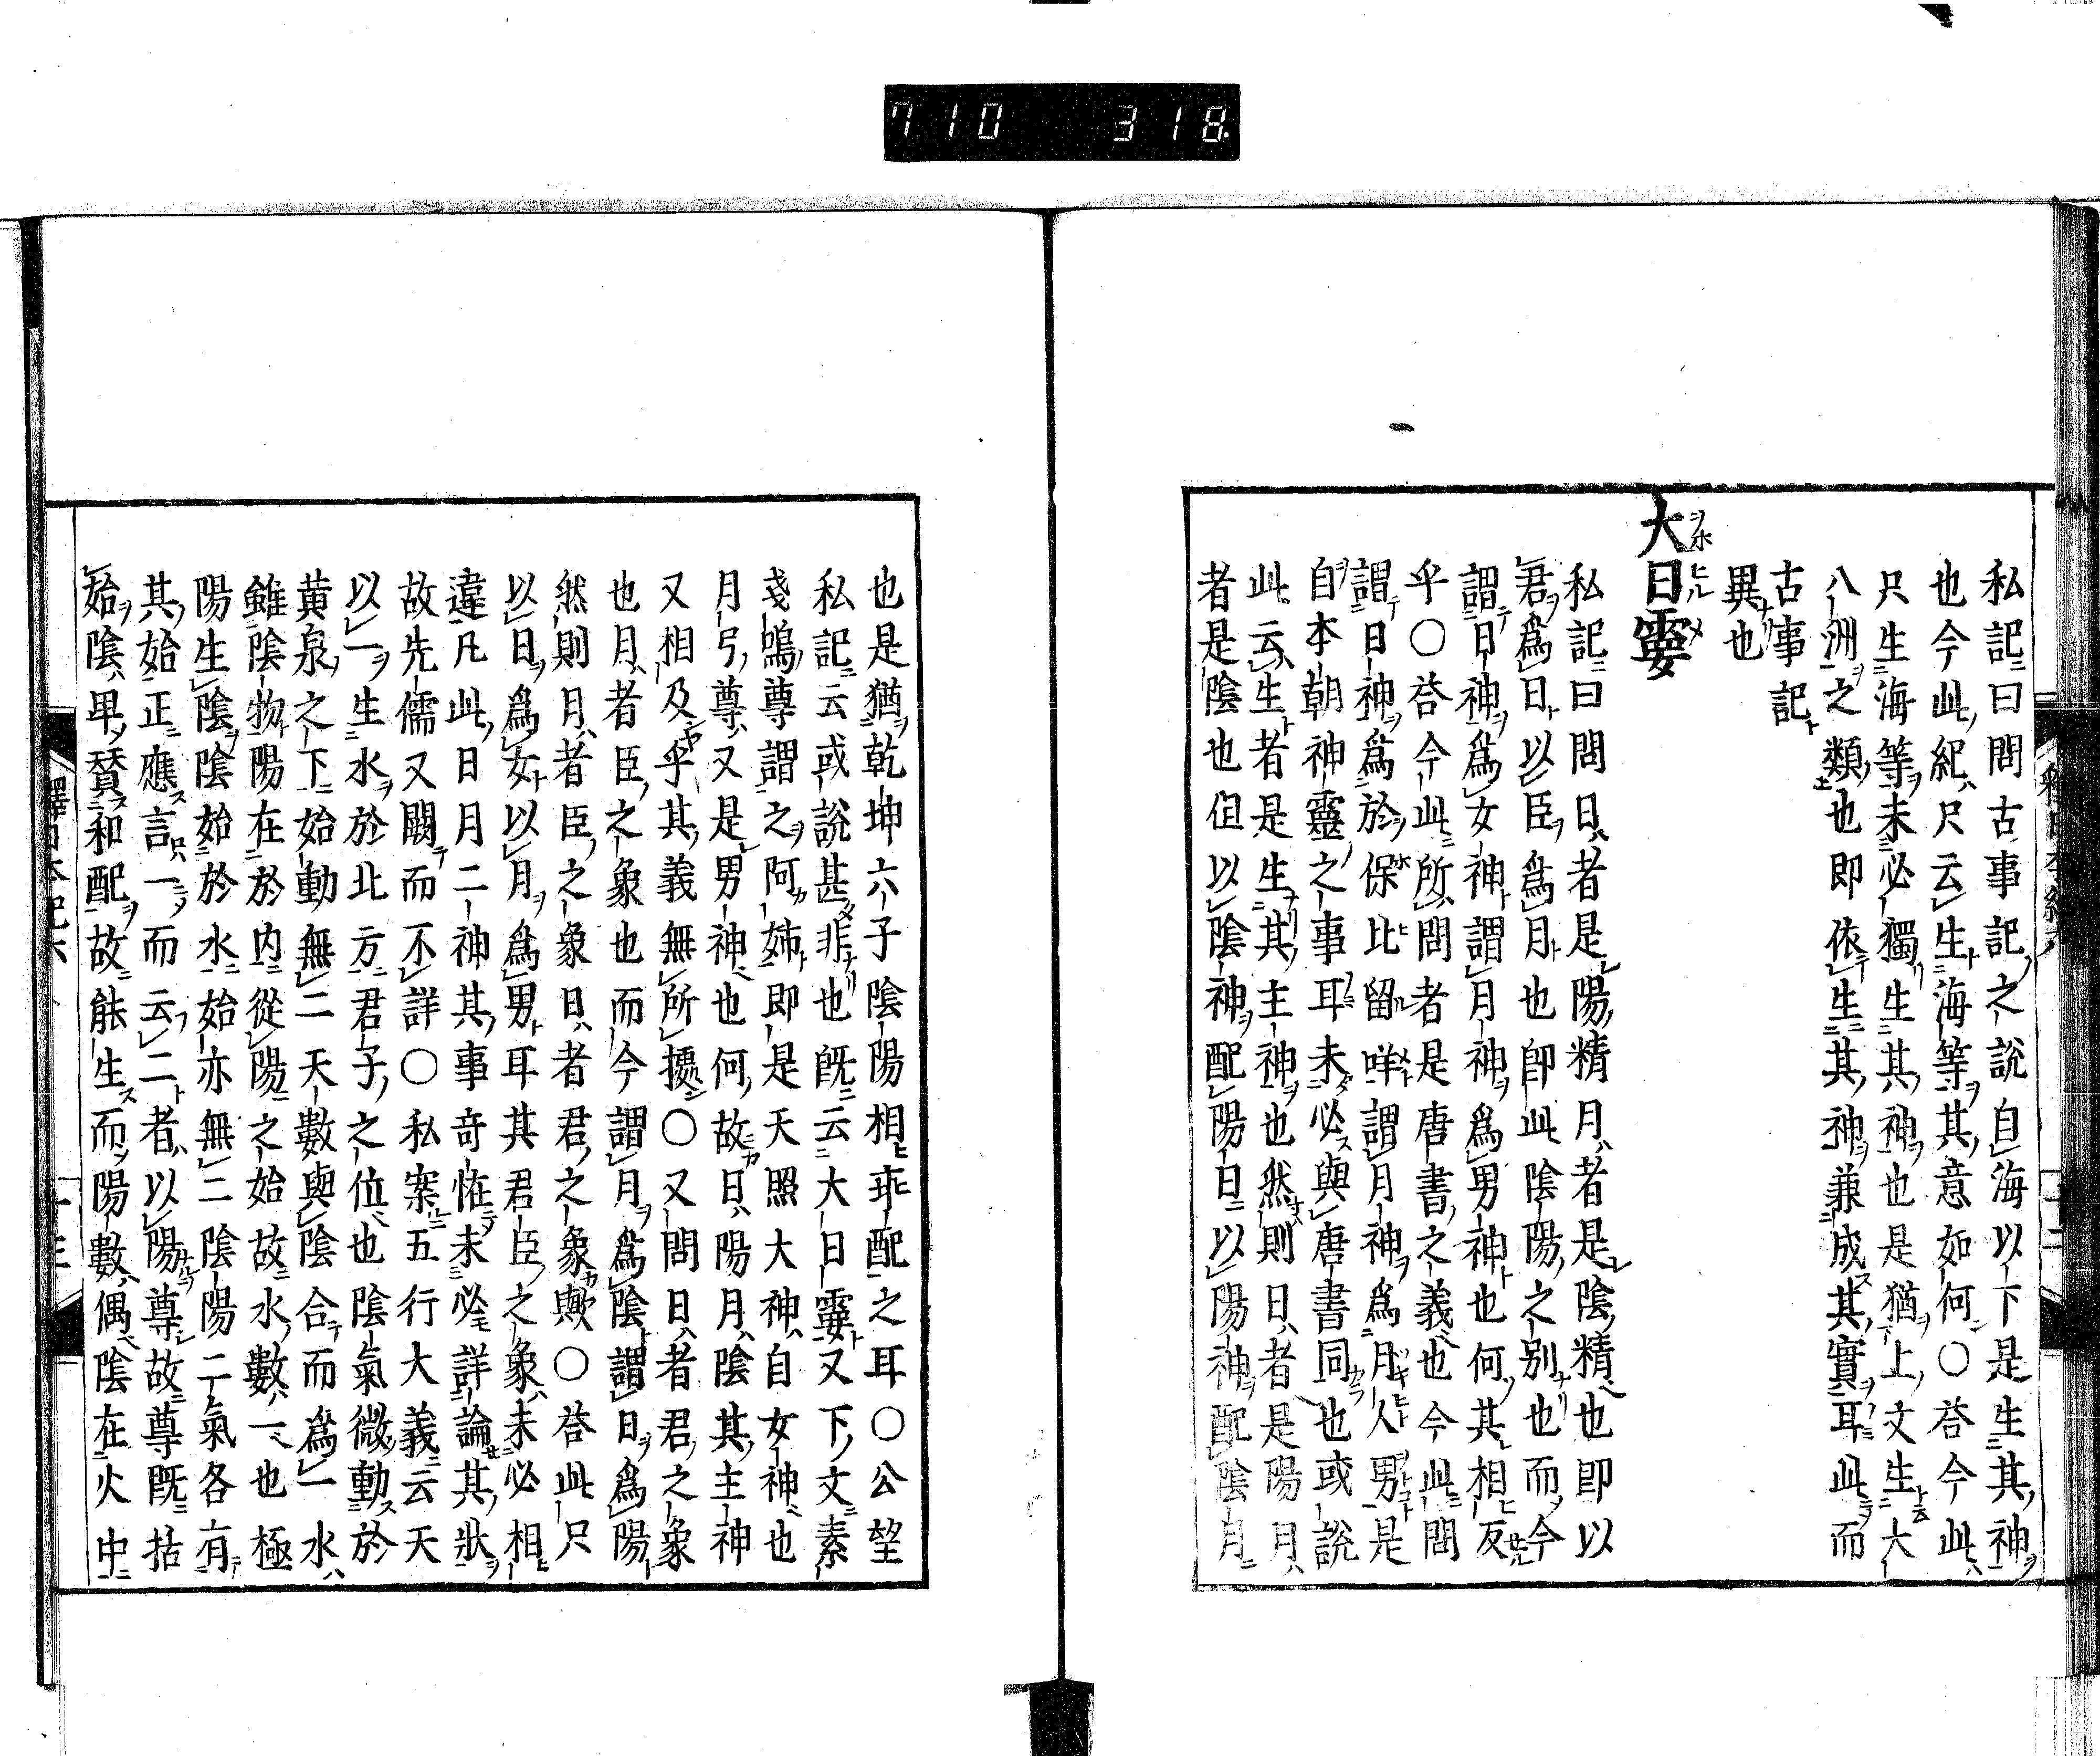 710 318
私記曰問古事記之說自海以下是生其神
也今此紀只云生海等其意如何〇荅今此
只生海等未必獨生其神也是猶上文生大
八洲之類也即依生其神兼成其實耳此而
古事記
異也
大日孁
私記曰問日者是陽精月者是陰精也即以
君為日以臣為月也即此陰陽之別也而今
謂日神為女神謂月神為男神也何其相反
乎〇荅今此所問者是唐書之義也今此問
謂日神為於保比留咩謂月神為月人男是
自本朝神靈之事耳未必與唐書同也或說
此云生者是生其主神也然則日者是陽月
者是陰也但以陰神配陽日以陽神配陰月
也是猶乾坤六子陰陽相乖配之耳〇公望
私記云或說甚非也既云大日孁又下文素
戔嗚尊謂之阿姉即是天照大神自女神也
月弓尊又是男神也何故日陽月陰其主神
又相及乎其義無所據〇又問日者君之象
也月者臣之象也而今謂月為陰謂日為陽
然則月者臣之象日者君之象歟〇荅此只
以日為女以月為男耳其君臣之象未必相
違凡此日月二神其事竒恠未必詳論其狀
故先儒又闕而不詳〇私案五行大義云天
以一生水於北方君子之位也陰氣微動於
黄泉之下始動無二天數與陰合而為一水
雖陰物陽在於内從陽之始故水數一也極
陽生陰陰始於水始亦無二陰陽二氣各有
其始正應言一而云二者以陽尊故尊既括
始陰卑賛和配故能生而陽數偶陰在火中